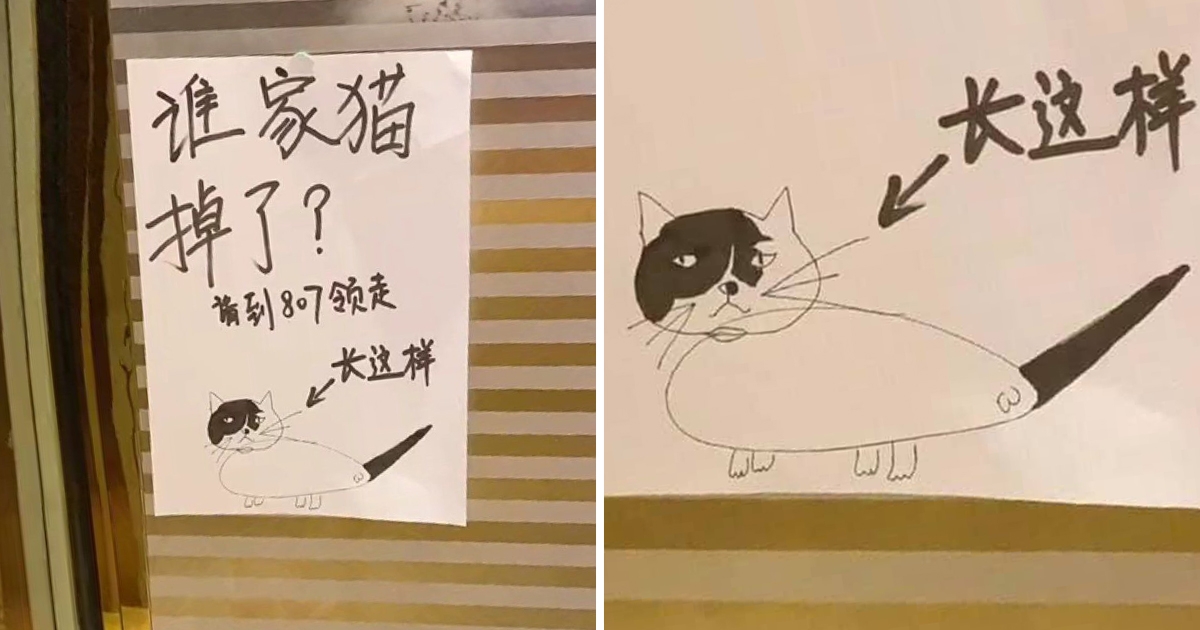 谁家猫
掉了?
请到807领走
长这样
长这样